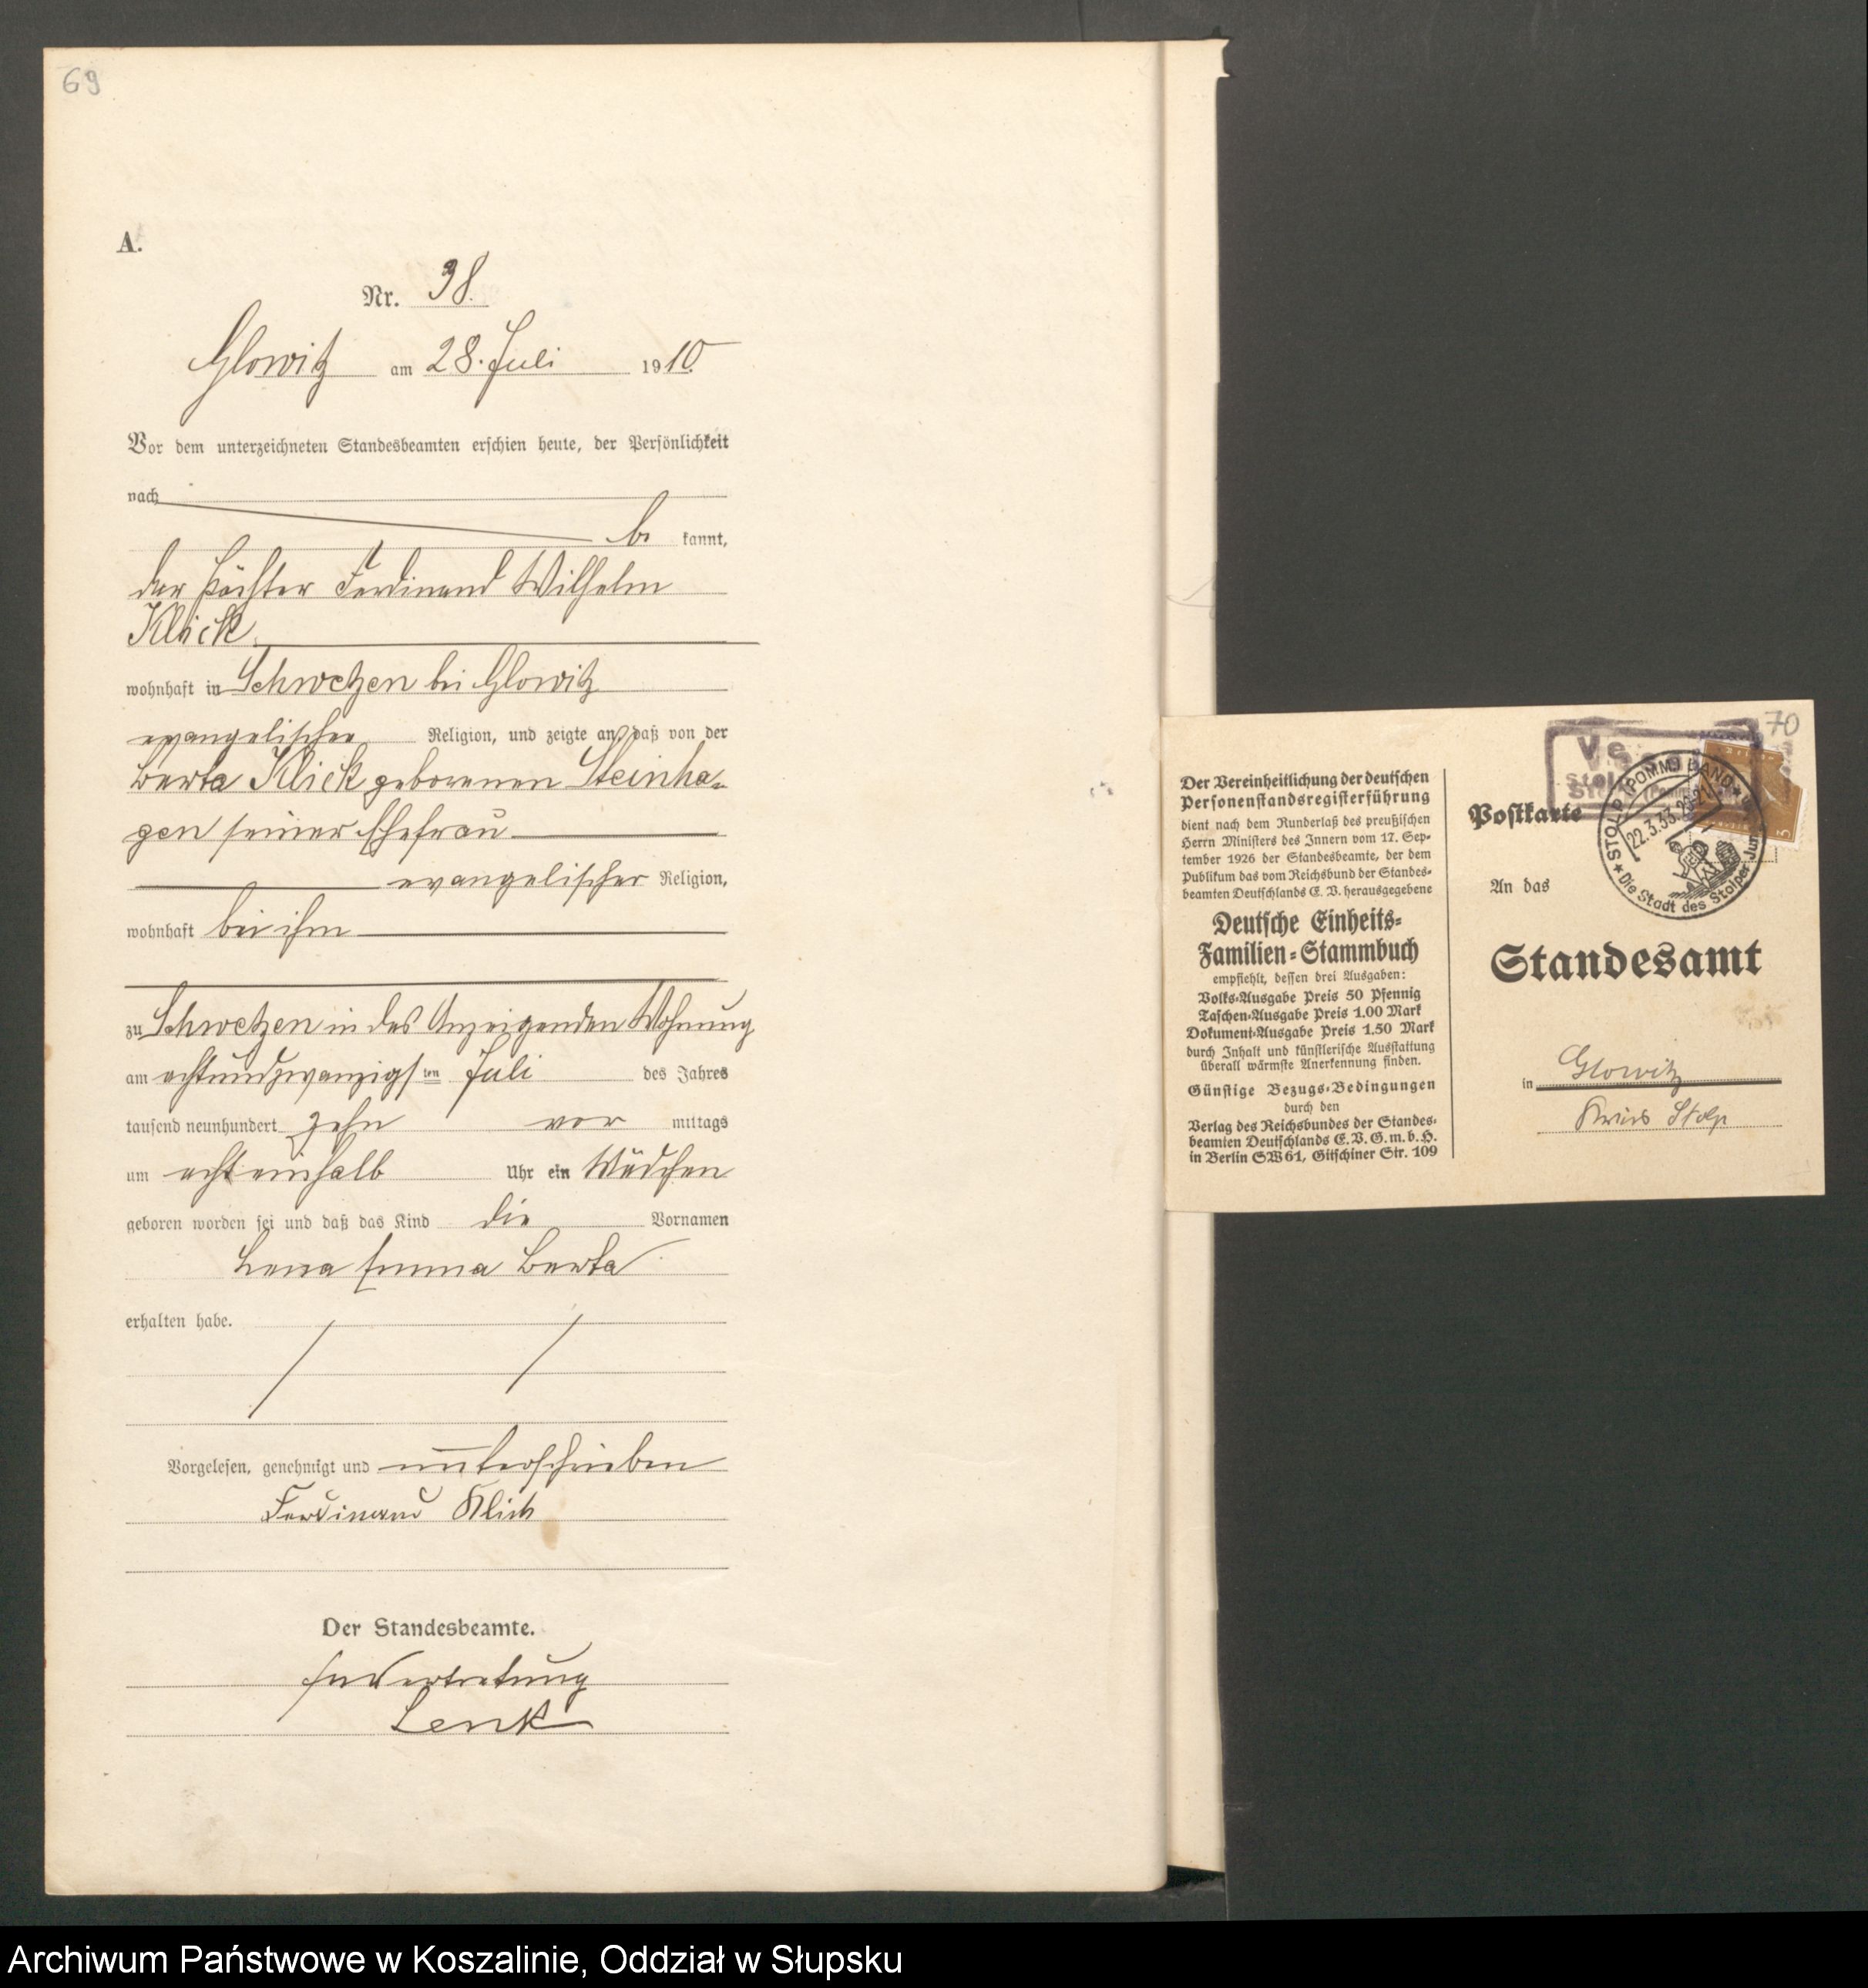 69
A.
Nr. 38.
Glowitz am 28. Juli 1910.
Vor dem unterzeichneten Standesbeamten erschien heute, der Persönlichkeit
nach
be kannt,
der Pächter Ferdinand Wilhelm
Klick
wohnhaft in Schwetzen bei Glowitz
evangelischer Religion, und zeigte an, daß von der
Berta Klick geborenen Steinha-
gen seiner Ehefrau
evangelischer Religion,
wohnhaft bei ihm
zu Schwetzen in des Anzeigenden Wohnung
am achtundzwanzigsten Juli des Jahres
tausend neunhundert zehn vor mittags
um acht einhalb Uhr ein Mädchen
geboren worden sei und daß das Kind die Vornamen
Emma Berta
erhalten habe.
Vorgelesen, genehmigt und unterschrieben
Ferdinand Klick
Der Standesbeamte.
In Vertretung
Lenk
70
Der Vereinheitlichung der deutschen
Personenstandsregisterführung
dient nach dem Runderlaß des preußischen
Herrn Ministers des Innern vom 17. Sep-
tember 1926 der Standesbeamte, der dem
Publikum das vom Reichsbund der Standes-
beamten Deutschlands E. V. herausgegebene
Deutsche Einheits-
Familien-Stammbuch
empfiehlt, dessen drei Ausgaben:
Volks-Ausgabe Preis 50 Pfennig
Taschen-Ausgabe Preis 1.00 Mark
Dokument-Ausgabe Preis 1.50 Mark
durch Inhalt und künstlerische Ausstattung
überall wärmste Anerkennung finden.
Günstige Bezugs-Bedingungen
durch den
Verlag des Reichsbundes der Standes-
beamten Deutschlands E. V. G. m. b. H.
in Berlin SW 61, Gitschiner Str. 109
Postkarte
STOLP (POMM) LAND
22.3.33.20-21
Die Stadt des Stolper Jun
3
An das
Standesamt
in Glowitz
Kreis Stolp
Archiwum Państwowe w Koszalinie, Oddział w Słupsku